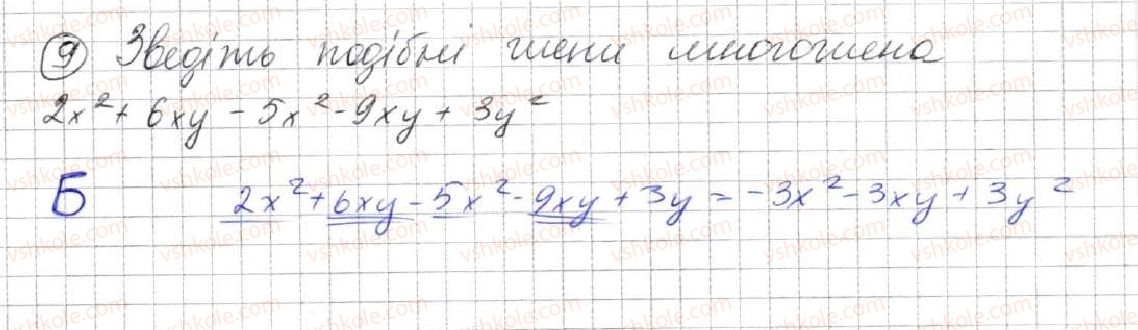 9 Зведіть подібні члени многочлена
2x² + 6xy - 5x² - 9xy + 3y²
Б 2x² + 6xy - 5x² - 9xy + 3y = -3x² - 3xy + 3y²